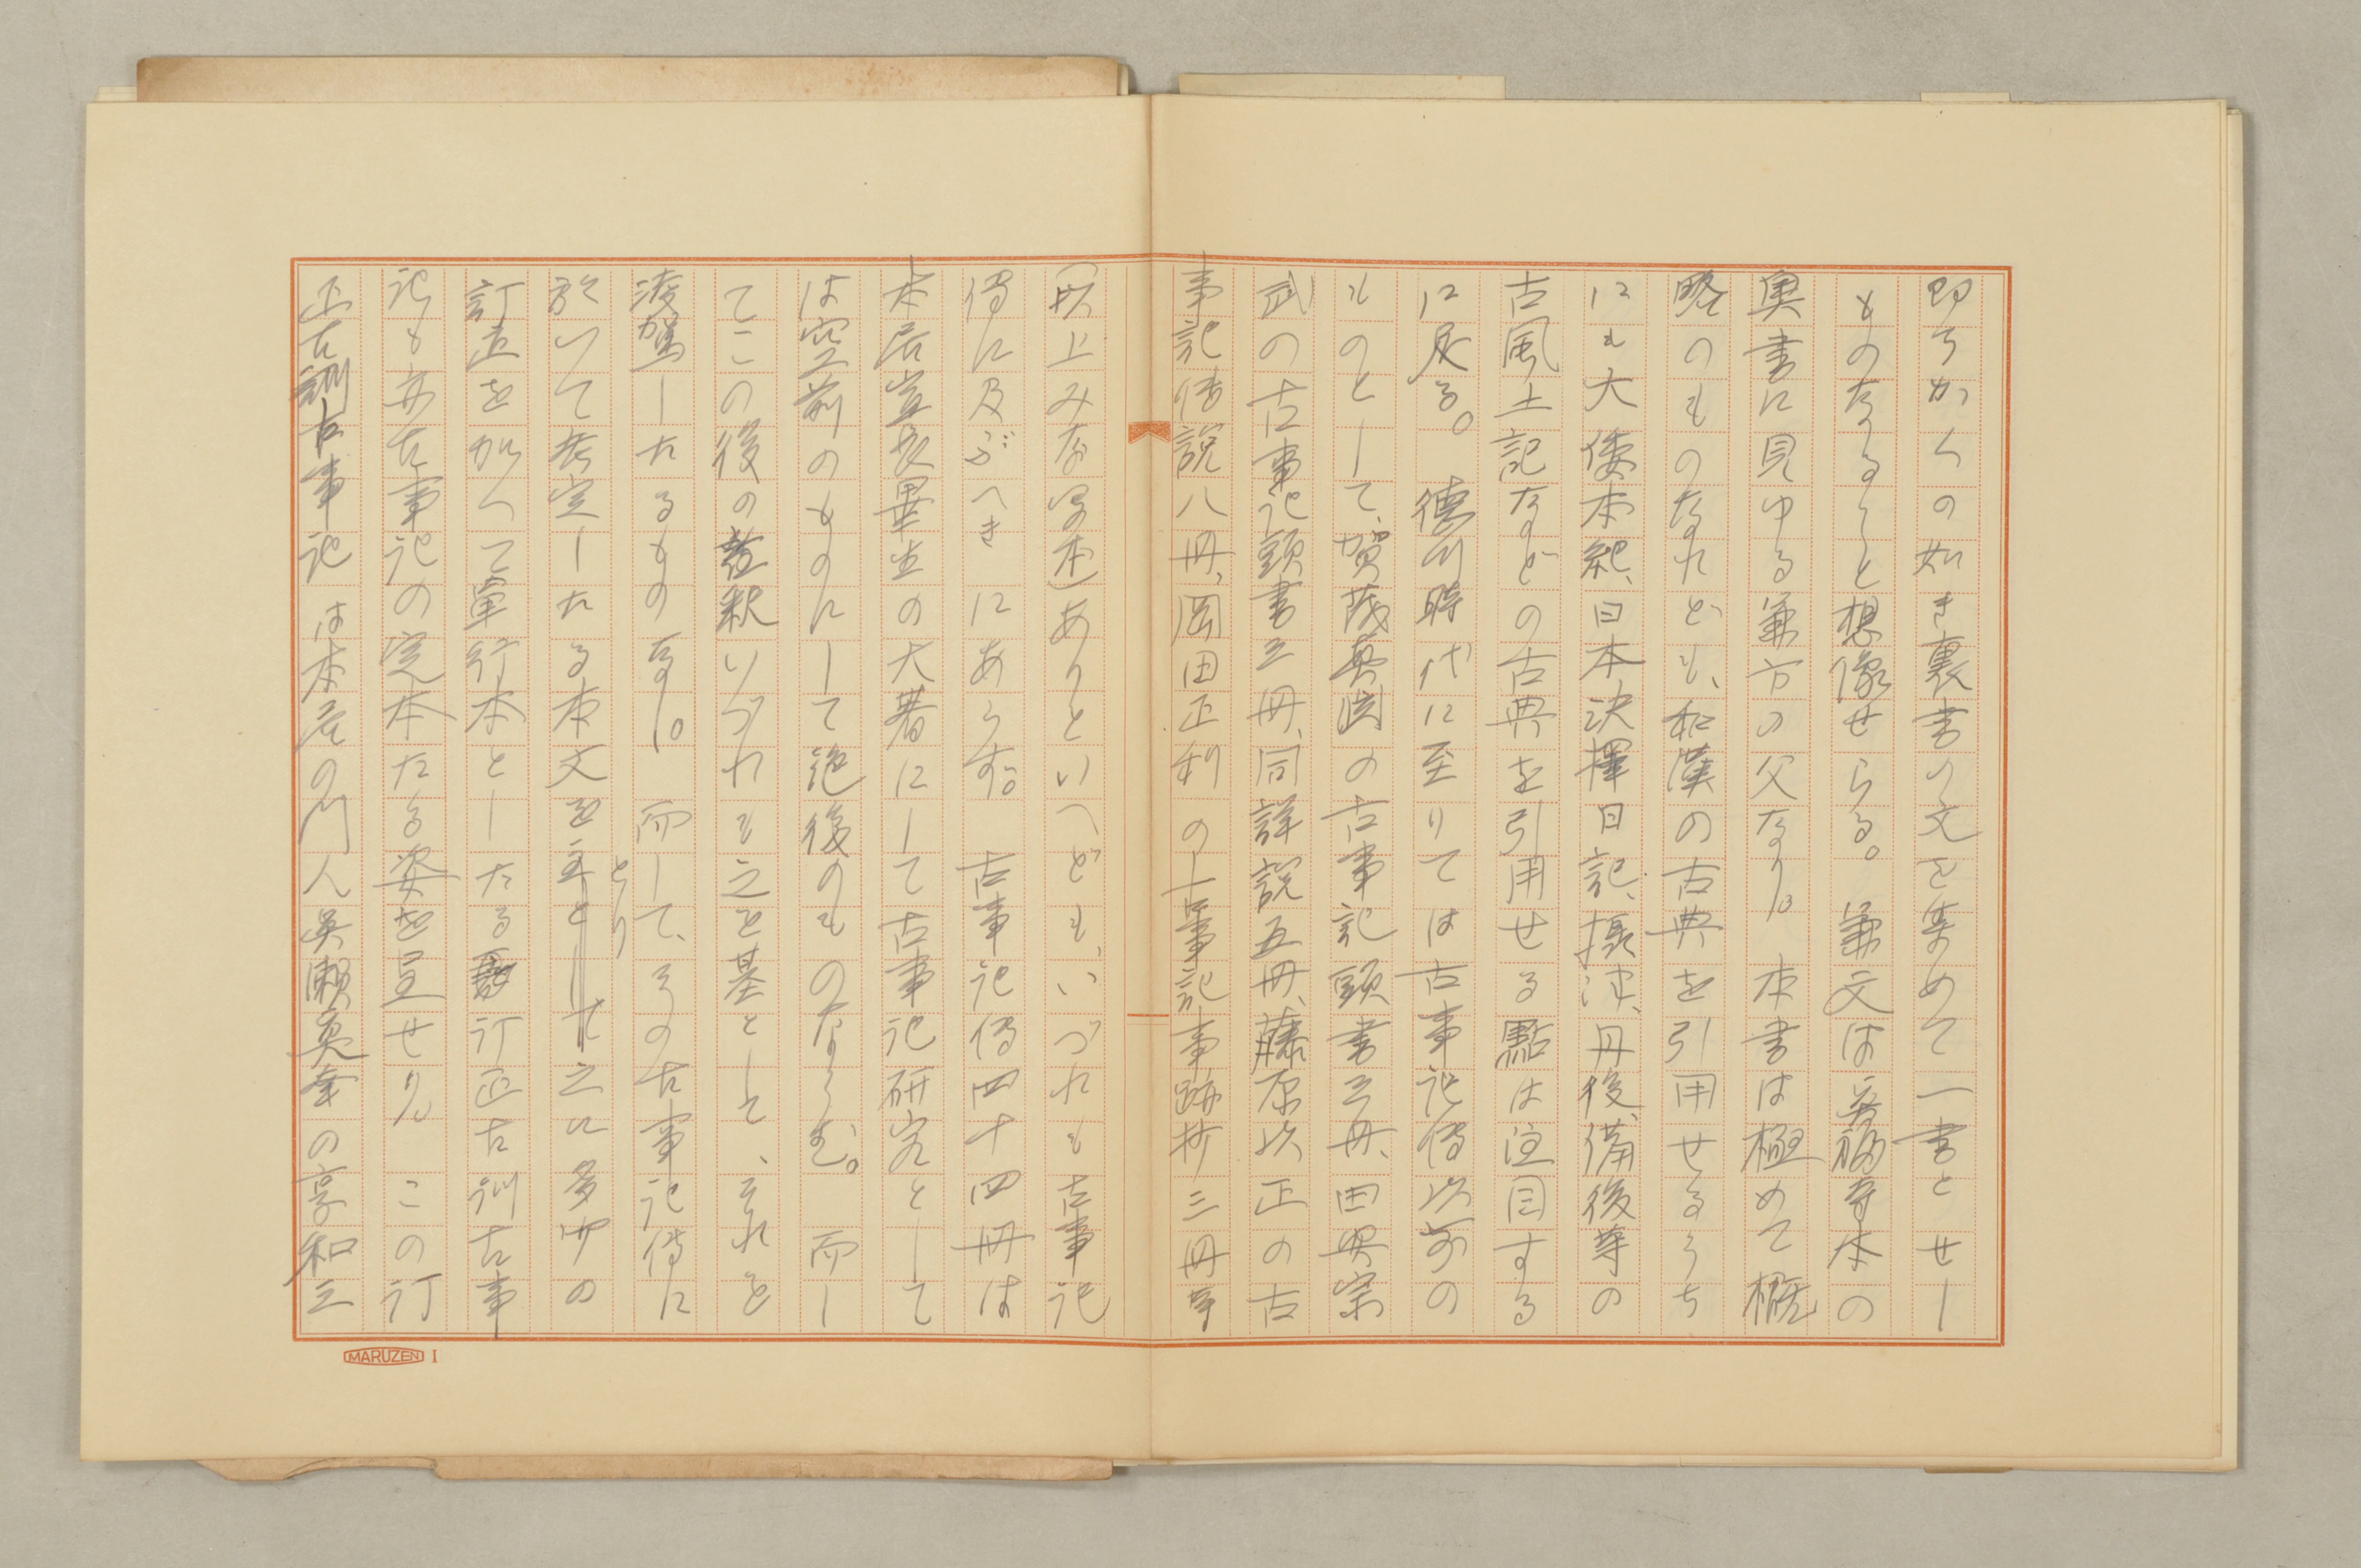 即ちかくの如き裏書の文を集めて一書とせし
ものなるべしと想像せらる。兼文は吾禰寺本の
奥書に見ゆる兼方の父なり。本書は極めて概
略のものなれども、和漢の古典を引用せるうち
にも大倭本紀、日本決擇、日記、攝津、丹後、備後等の
古風土記などの古典を引用せる點は注目する
に足る。徳川時代に至りては古事記傳以前の
ものとして、賀茂真淵の古事記頭書三冊、田安宗
武の古事記頭書三冊、同詳説五冊、藤原以正の古
事記傳説八冊、岡田正利の古事記事跡抄三冊等
(以上みな写本)ありといへども、いづれも古事記
傳に及ぶべきにあらず。古事記傳四十四冊は
本居宣長畢生の大著にして古事記研究として
は空前のものにして絶後のものならむ。而し
てこの後の註釈いづれも之を基として、それを
凌駕したるものなし。而して、その古事記傳に
於いて考定したる本文をとり之に多少の
訂正を加へて單行本としたる訂正古訓古事
記も亦古事記の完本たる姿を呈せり。この訂
正古訓古事記は本居の門人長瀬真幸の享和三
MARUZEN I